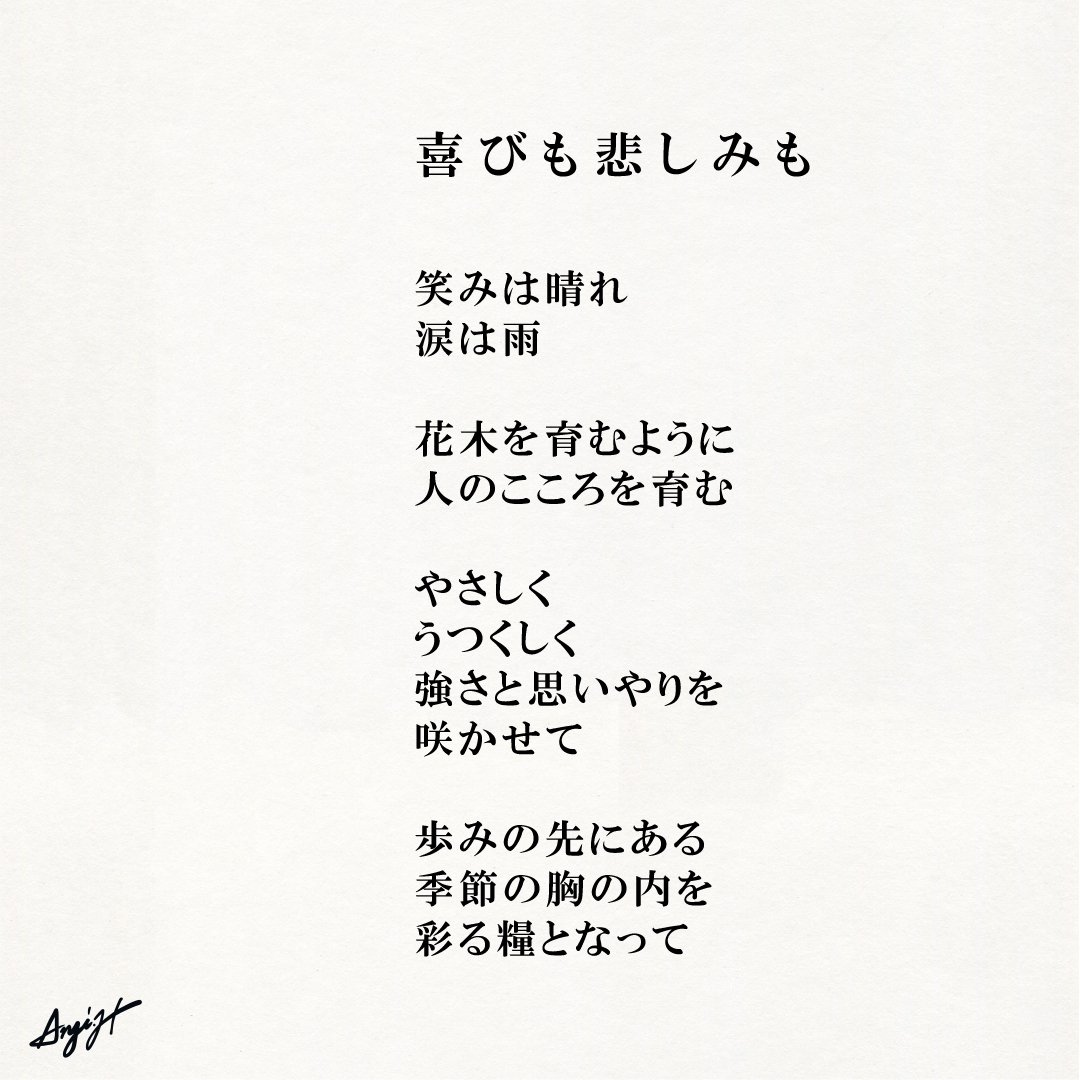 喜びも悲しみも
笑みは晴れ
涙は雨
花木を育むように
人のこころを育む
やさしく
うつくしく
強さと思いやりを
咲かせて
歩みの先にある
季節の胸の内を
彩る糧となって